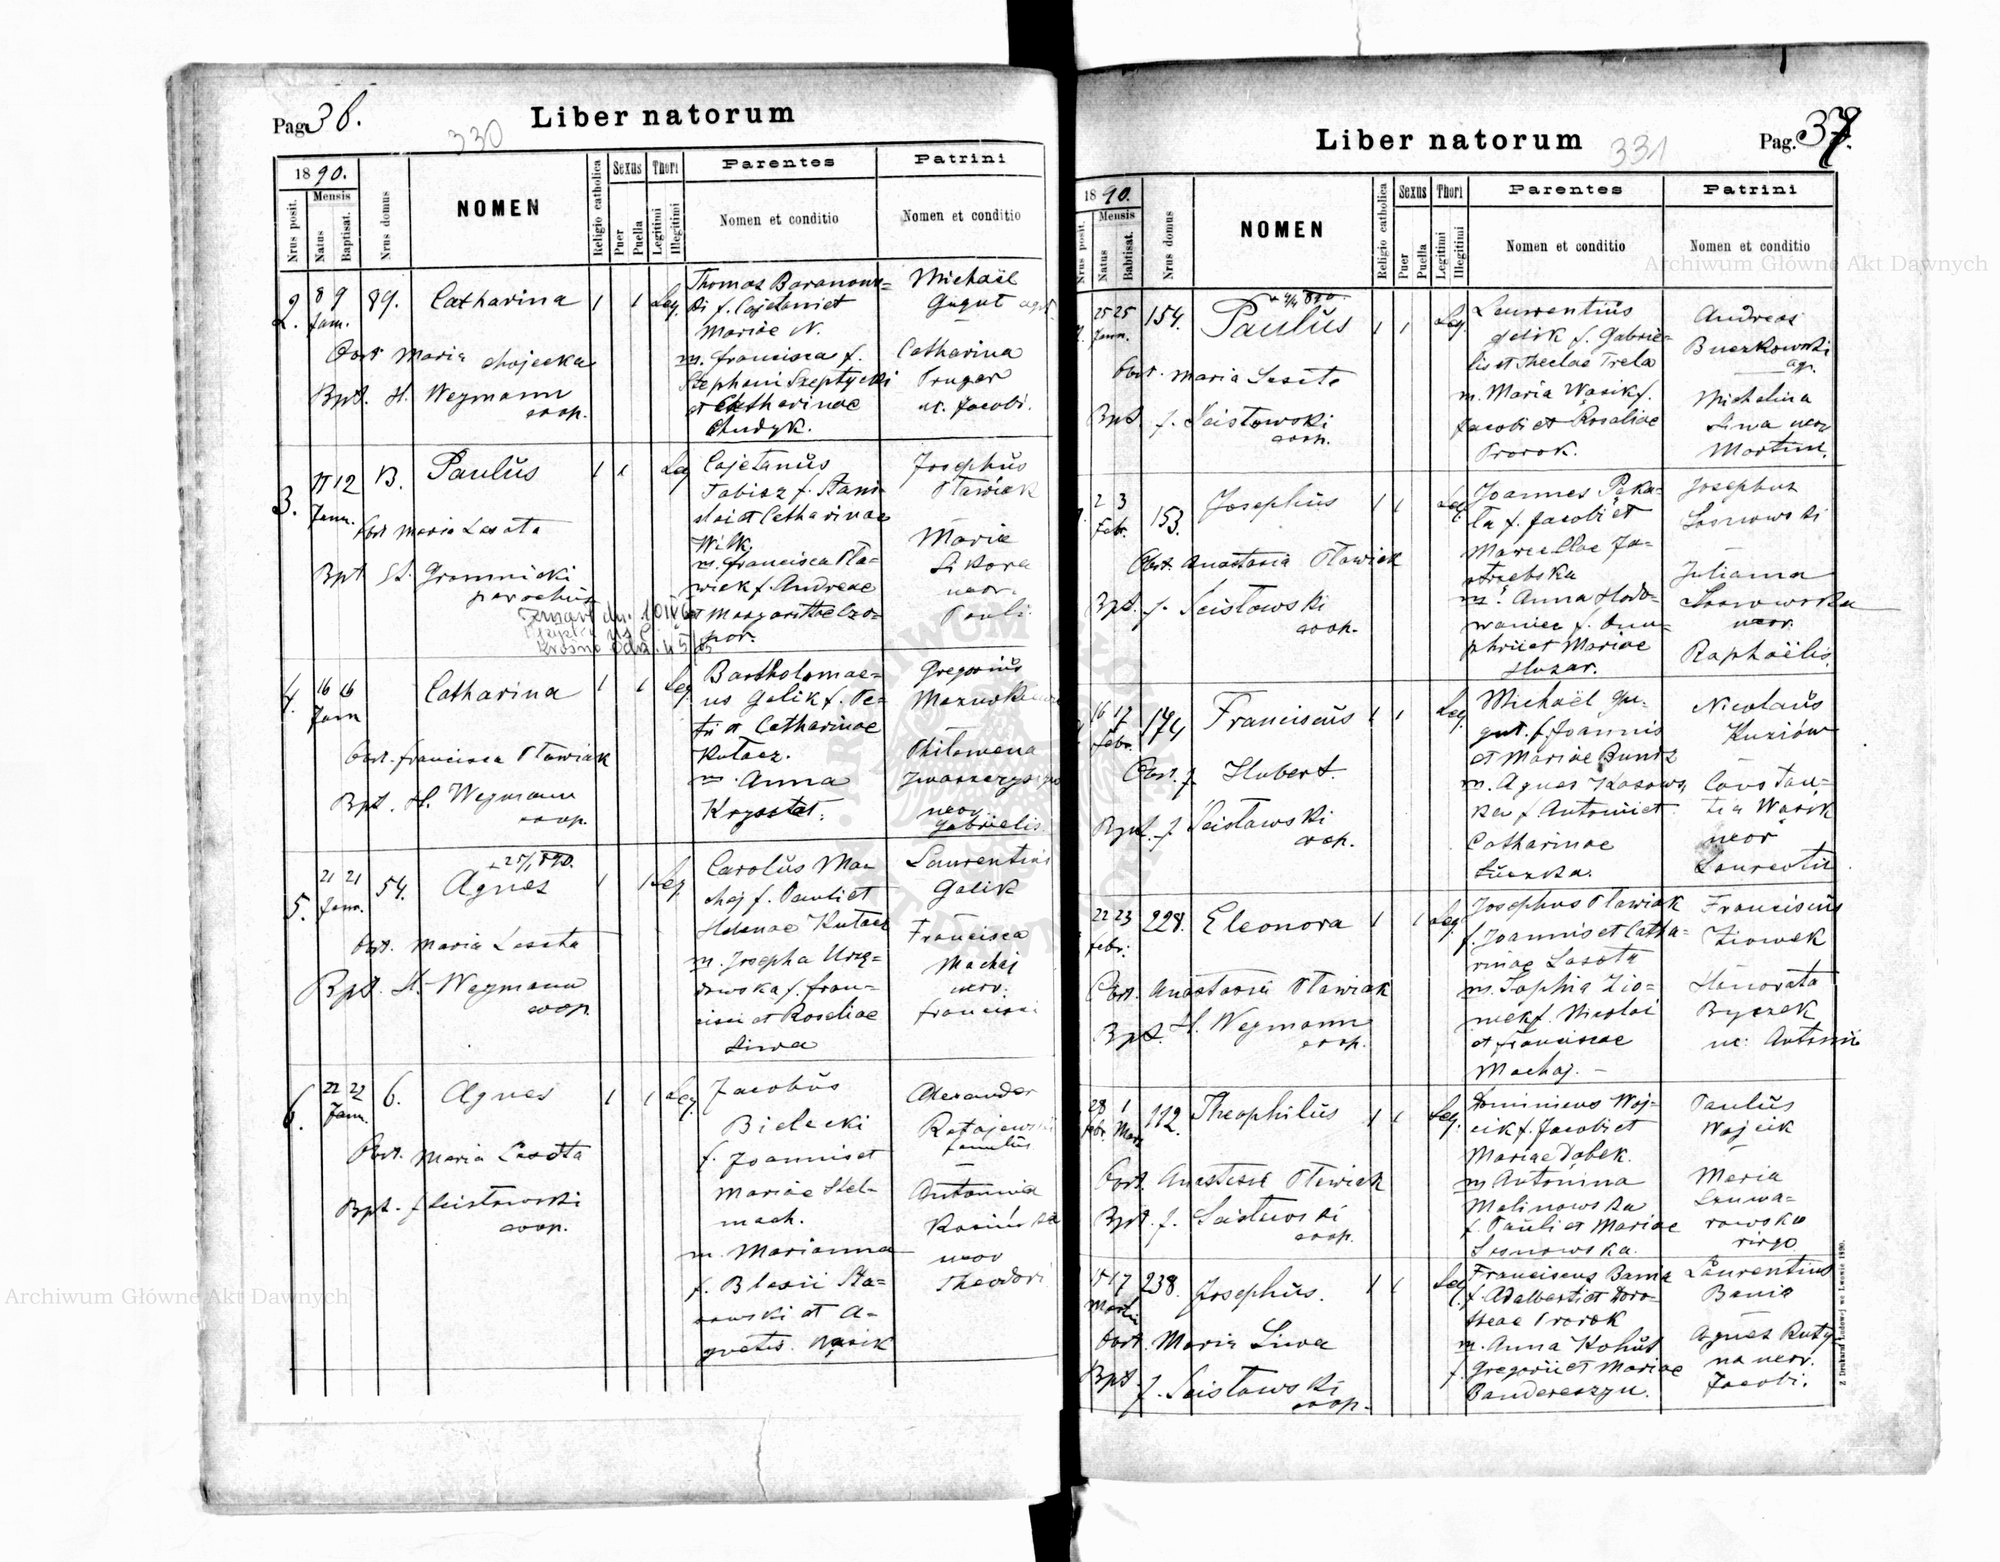 Pag. 36.
330
Liber natorum
1890.
Mensis
Nrus posit.
Natus
Baptisat.
Nrus domus
NOMEN
Religio catholica
Sexus
Puer
Puella
Thori
Legitimi
Illegitimi
Parentes
Nomen et conditio
Patrini
Nomen et conditio
2.
8 9
Jan.
89.
Catharina
1 1 Leg.
Obst Maria Chojecka
Bpt. H. Wegmann
coop.
Thomas Baranows-
ki f. Cajetani et
Mariae N.
m. Francisca f.
Stephani Szeptycki
et Catharinae
Chudyk.
Michaël
Gugut agr.
Catharina
Prugar
ux. Jacobi.
3.
11 12
Jann.
13.
Paulus
1 1 Leg
Obst Maria Lasota
Bpt St. Gromnicki
parochus
Cajetanus
Tabisz f. Stani-
slai et Catharinae
Wilk.
m. Francisca Pła-
wiek f. Andreae
et Margarithae
Josephus
Pławiak
Maria
Sikora
uxor.
Pauli
4.
16 16
Jann
Catharina
1 1 Leg
Obst. Francisca Pławiak
Bpt. H. Wegmann
coop.
Bartholomae-
us Galik f. Pe-
tri et Catharinae
Kułacz.
m. Anna
Krysztat.
Gregorius
Philomena
uxor
Gabrielis
5.
21 21
Jann.
54.
+ 25/1 890.
Agnes
1 1 Leg.
Obst. Maria Lasota
Bpt. H. Wegmann
coop.
Carolus Ma-
chaj f. Pauli et
Helenae Kułacz
m. Josepha Urzę-
dowska f. Fran-
cisci et Rosaliae
Liwa
Laurentius
Galik
Francisca
Machaj
uxor.
Francisci
6.
22 22
Jann.
6.
Agnes
1 1 Leg.
Obst. Maria Lasota
Bpt. J. Scisłowski
coop.
Jacobus
Bielecki
f. Joannis et
Mariae Stel-
mach.
m. Marianna
f. Blasii Sta-
et A-
gnetis Wąsik
Alexander
Ratajewski
famulus
Antonina
uxor
Theodori
Liber natorum
331
Pag. 37.
1890.
Mensis
Nrus posit.
Natus
Babtisat.
Nrus domus
NOMEN
Religio catholica
Sexus
Puer
Puella
Thori
Legitimi
Illegitimi
Parentes
Nomen et conditio
Patrini
Nomen et conditio
25 25
Jann.
154.
Paulus
1 1 Leg
Obst. Maria Lasota
Bpt J. Scisłowski
coop.
Laurentius
Galik f. Gabrie-
lis et Theclae Trela
m. Maria Wąsik f.
Jacobi et Rosaliae
Prorok.
Andreas
Buczkowski
agr.
Michalina
Liwa uxor
Martini.
2 3
Febr.
153.
Josephus
1 1 Leg.
Obst. Anastasia Pławiak
Bpt. J. Scisłowski
coop.
Joannes Pęka-
la f. Jacobi et
Marcellae Ja-
strzębska
m. Anna Hodo-
waniec f. Onu-
phrii et Mariae
Huzar.
Josephus
Sosnowski
Juliana
Sosnowska
uxor.
Raphaëlis
16 17
Febr.
174
Franciscus
1 1 Leg.
Obst. J. Hubert.
Bpt. J. Scisłowski
coop.
Michaël Gu-
gut f. Joannis
et Mariae Buntz
m. Agnes Kosows-
ka f. Antonii et
Catharinae
Nicolaus
Kuziów
Constan-
tia Wąsik
uxor
Laurentii
22 23
Febr.
228.
Eleonora
1 1 Leg.
Obst. Anastasia Pławiak
Bpt. H. Wegmann
coop.
Josephus Pławiak
f. Joannis et Catha-
rinae Lasota
m. Sophia Zio-
mek f. Nicolai
et Franciscae
Machaj.
Franciscus
Ziomek
Honorata
Byczek
ux. Antonii
28 1
Febr. Mart.
112.
Theophilus
1 1 Leg.
Obst. Anastasia Pławiak
Bpt. J. Scisłowski
coop.
Dominicus Woj-
cik f. Jacobi et
Mariae Dąbek.
m. Antonina
Malinowska
f. Pauli et Mariae
Sosnowska.
Paulus
Wojcik
Maria
virgo
17
Martii
238.
Josephus.
1 1 Leg.
Obst. Maria Liwa
Bpt. J. Scisłowski
coop.
Franciscus Bania
f. Adalberti et Doro-
theae Prorok
m. Anna Kohut
f. Gregorii et Mariae
Laurentius
Bania
Agnes Ruty-
na uxor.
Jacobi.
Z Drukarni Ludowej we Lwowie 1890.
Archiwum Główne Akt Dawnych
Archiwum Główne Akt Dawnych